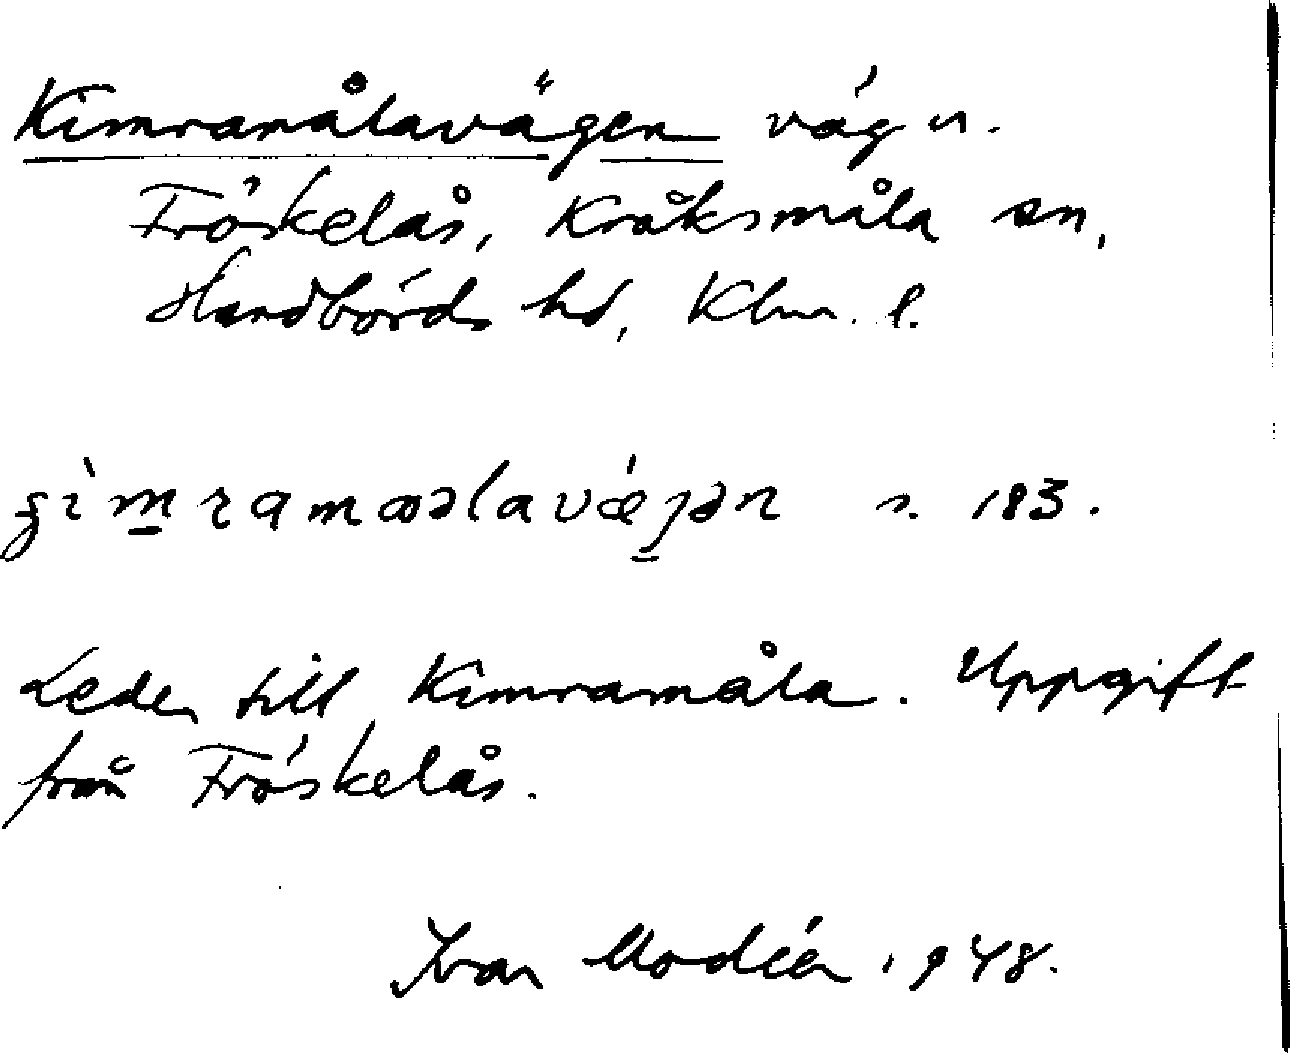 Kimramålavägen väg u.
Fröskelås, Kråksmåla sn,
Handbörds hd, Klm. l.
s. 183.
Leder till Kimramåla. Uppgift
från Fröskelås.
Ivar Modéer 1948.